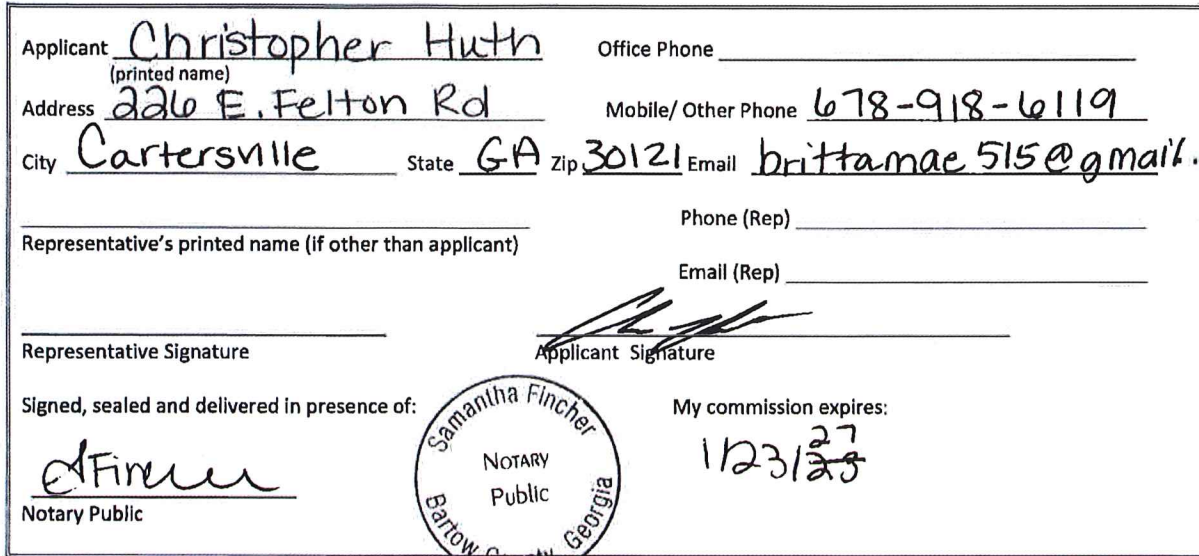 Applicant Christopher Huth Office Phone
(printed name)
Address 226 E. Felton Rd Mobile/ Other Phone 678-918-6119
City Cartersville State GA Zip 30121 Email brittamae515@gmail.
Phone (Rep)
Representative's printed name (if other than applicant)
Email (Rep)
Representative Signature Applicant Signature
Signed, sealed and delivered in presence of: My commission expires:
SFincher
1/23/27
Notary Public
Samantha Fincher
NOTARY
Public
Bartow County Georgia